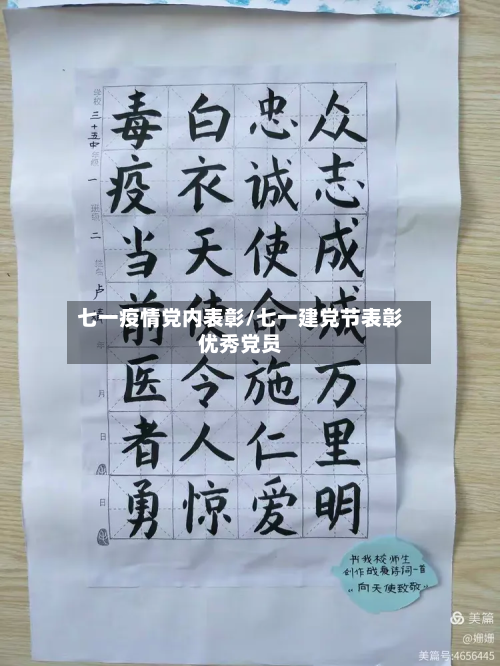 众志成城万里明
忠诚使命施仁爱
白衣天使令人惊
毒疫当前医者勇
学校
三十五中
一
二
卢
月
日
日
七一疫情党内表彰/七一建党节表彰
优秀党员
书我校师生
创作战疫诗词一首
"向天使致敬"
美篇
@姗姗
美篇号:4656445